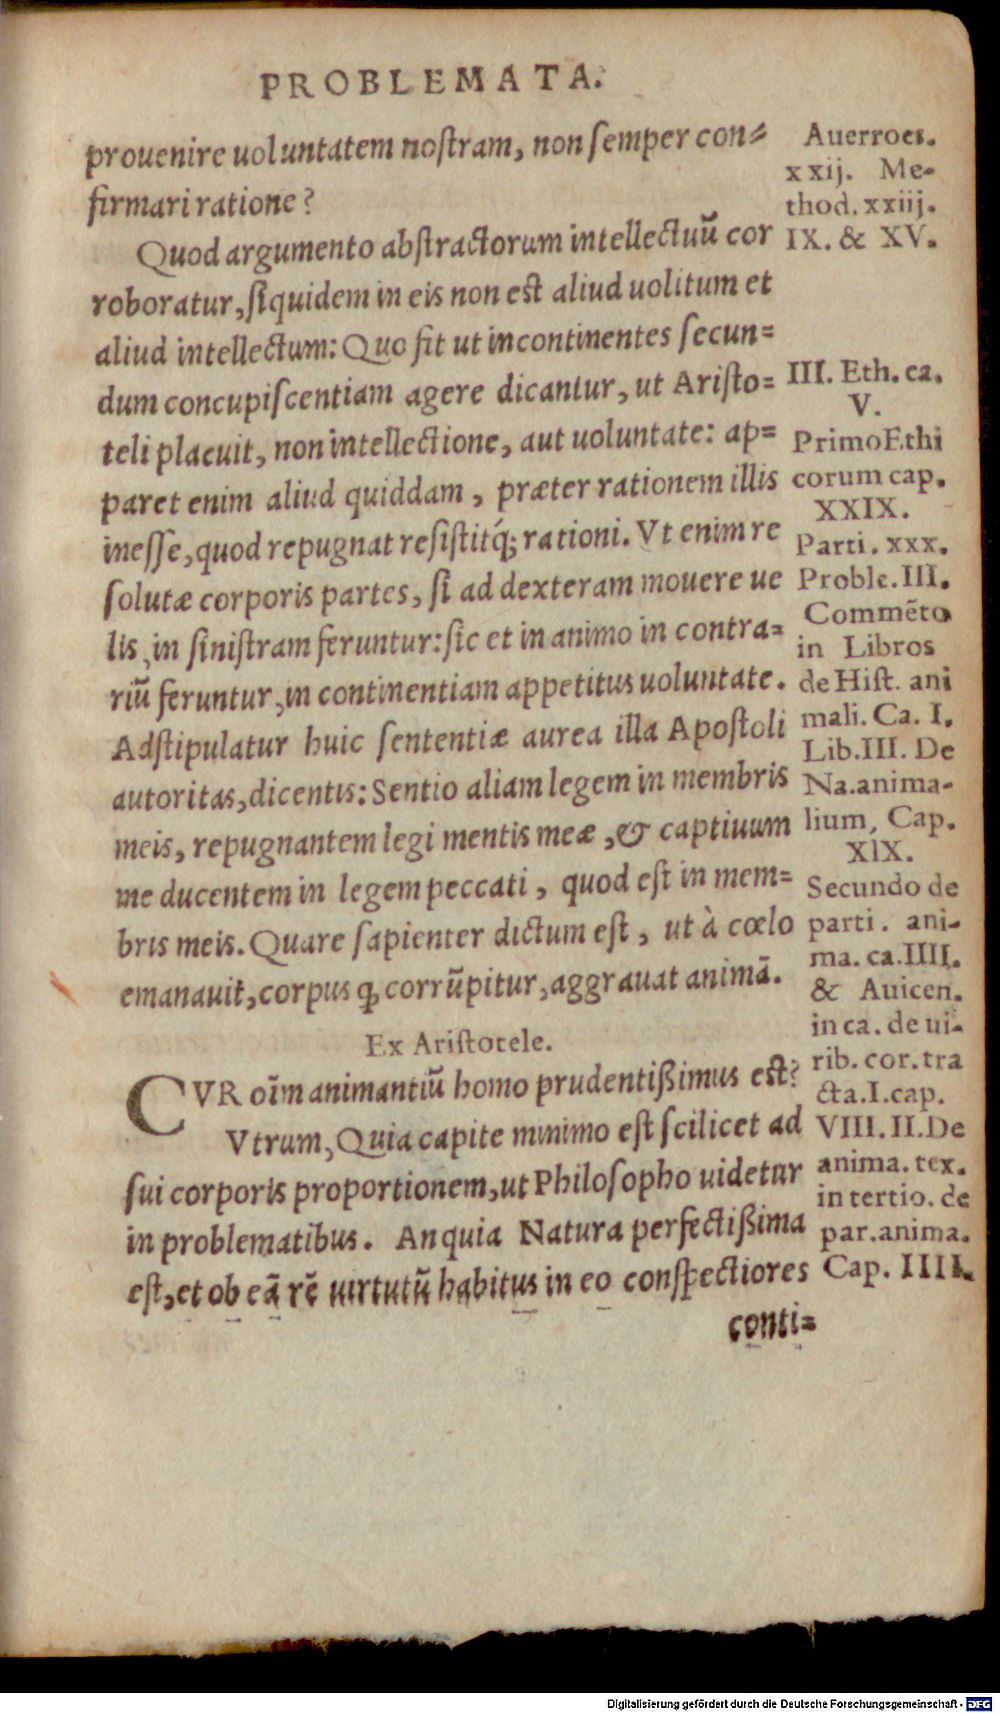 PROBLEMATA.
prouenire uoluntatem noſtram, non ſemper con-
firmari ratione?
Quod argumento abſtractorum intellectuū cor
roboratur, ſiquidem in eis non est aliud uolitum et
aliud intellectum: Quo fit ut incontinentes ſecun=
dum concupiſcentiam agere dicantur, ut Ariſto=
teli placuit, non intellectione, aut uoluntate: ap=
paret enim aliud quiddam, præter rationem illis
ineſſe, quod repugnat reſiſtitq́; rationi. Vt enim re
ſolutæ corporis partes, ſi ad dexteram mouere ue
lis, in ſiniſtram feruntur: ſic et in animo in contra=
riū feruntur, in continentiam appetitus uoluntate.
Adſtipulatur huic ſententiæ aurea illa Apoſtoli
autoritas, dicentis: Sentio aliam legem in membris
meis, repugnantem legi mentis meæ, & captiuum
me ducentem in legem peccati, quod eſt in mem=
bris meis. Quare ſapienter dictum eſt, ut à cœlo
emanauit, corpus ꝙ corrūpitur, aggrauat animā.
Ex Ariſtotele.
CVR oīm animantiū homo prudentißimus est?
Vtrum, Quia capite minimo eſt ſcilicet ad
ſui corporis proportionem, ut Philoſopho uidetur
in problematibus. An quia Natura perfectißima
eſt, et ob eā rē uirtutū habitus in eo conſpectiores
conti=
Auerroes.
xxij. Me-
thod. xxiij.
IX. & XV.
III. Eth. ca.
V.
Primo Ethi
corum cap.
XXIX.
Parti. xxx.
Proble. III.
Commēto
in Libros
de Hiſt. ani
mali. Ca. I.
Lib. III. De
Na. anima-
lium, Cap.
XIX.
Secundo de
parti. ani-
ma. ca. IIII.
& Auicen.
in ca. de ui-
rib. cor. tra
cta. I. cap.
VIII. II. De
anima. tex.
in tertio. de
par. anima.
Cap. IIII.
Digitalisierung gefördert durch die Deutsche Forschungsgemeinschaft - DFG